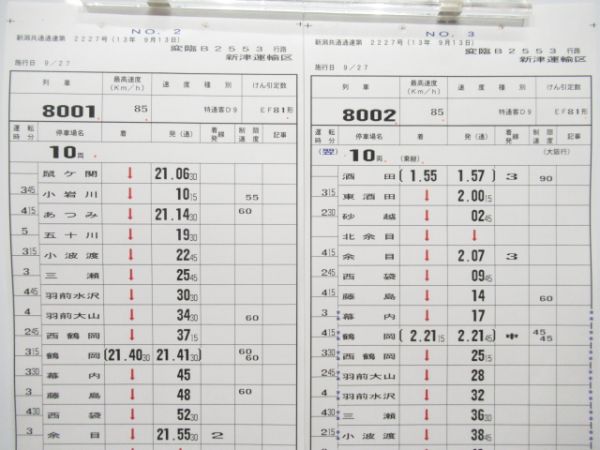 NO. 2
新潟共通通達第 2227号 (13年 9月13日)
変臨B2553 行路
新津運輸区
施行日 9/27
列車 最高速度(Km/h) 速度種別 けん引定数
8001 85 特通客D9 EF81形
運転時分 停車場名 着 発(通) 着発線 制限速度 記事
10両
鼠ケ関 ↓ 21.06 30
345 小岩川 ↓ 10 15 55
415 あつみ ↓ 21.14 30 60
5 五十川 ↓ 19 30
315 小波渡 ↓ 22 45
3 三瀬 ↓ 25 45
445 羽前水沢 ↓ 30 30
4 羽前大山 ↓ 34 30 60
245 西鶴岡 ↓ 37 15
315 鶴岡 (21.40 30 21.41 30) 60 60
330 幕内 ↓ 45
3 藤島 ↓ 48 60
430 西袋 ↓ 52 30
3 余目 ↓ 21.55 30 2
NO. 3
新潟共通通達第 2227号 (13年 9月13日)
変臨B2553 行路
新津運輸区
施行日 9/27
列車 最高速度(Km/h) 速度種別 けん引定数
8002 85 特通客D9 EF81形
運転時分 停車場名 着 発(通) 着発線 制限速度 記事
(翌) 10両 (東線) (大阪行)
酒田 (1.55 1.57) 3 90
315 東酒田 ↓ 2.00 15
230 砂越 ↓ 02 45
北余目 ↓ ↓
415 余目 ↓ 2.07 3
245 西袋 ↓ 09 45
415 藤島 ↓ 14 60
3 幕内 ↓ 17
415 鶴岡 (2.21 15 2.21 45) 中 45 45
330 西鶴岡 ↓ 25 15
245 羽前大山 ↓ 28
4 羽前水沢 ↓ 32
430 三瀬 ↓ 36 30
215 小波渡 ↓ 38 45